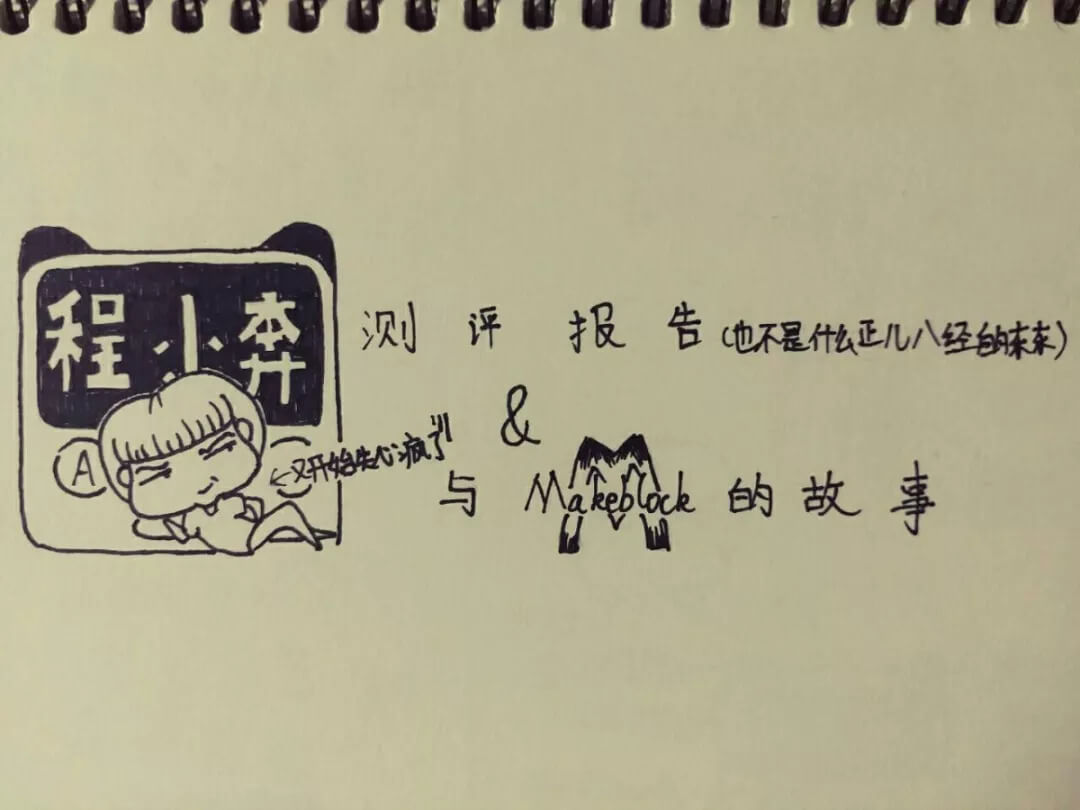 程小奔 测评报告(也不是什么正儿八经的东东)
A
←又开始失心疯了!!!
&
与 Makeblock 的故事